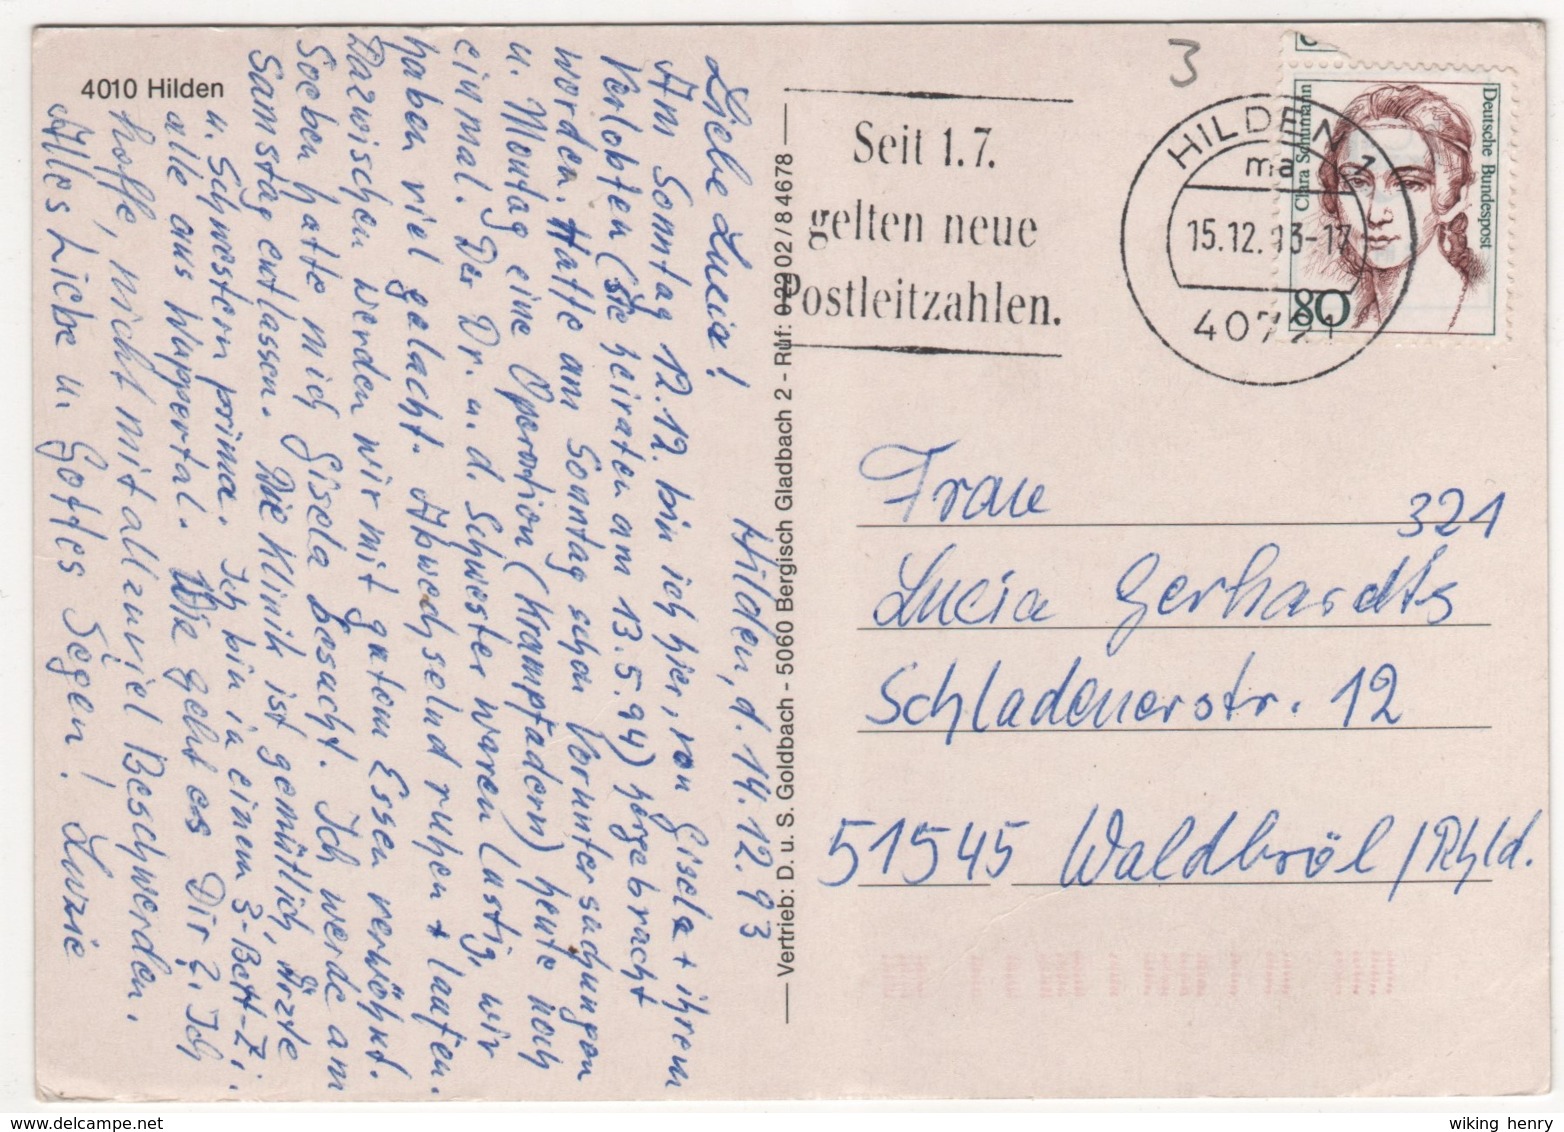 4010 Hilden
Hilden, d. 14.12.93
Liebe Lucia!
Am Sonntag 12.12. bin ich hier, von Gisela + ihrem
Verlobten (Sie heiraten am 13.5.94) hergebracht
worden. Hatte am Sonntag schon Voruntersuchungen
u. Montag eine Operation (Krampfadern) heute noch
einmal. Der Dr. u. d. Schwester waren lustig, wir
haben viel gelacht. Abwechselnd ruhen + laufen.
Dazwischen werden wir mit gutem Essen verwöhnt.
Soeben hatte mich Gisela besucht. Ich werde am
Samstag entlassen. Die Klinik ist gemütlich, Ärzte
u. Schwestern prima. Ich bin in einem 3-Bett-Zi.
alle aus Wuppertal. Wie geht es Dir? Ich
hoffe, nicht mit allzuviel Beschwerden.
Alles Liebe u. Gottes Segen! Luzie
Vertrieb: D. u. S. Goldbach - 5060 Bergisch Gladbach 2 - Ruf: 02202/84678
Seit 1.7.
gelten neue
Postleitzahlen.
3
HILDEN 1
ma
15.12.93-17
40721
Deutsche Bundespost
Clara Schumann
80
Frau
321
Lucia Gerhardts
Schladenerstr. 12
51545 Waldbröl / Rhld.
wiking henry